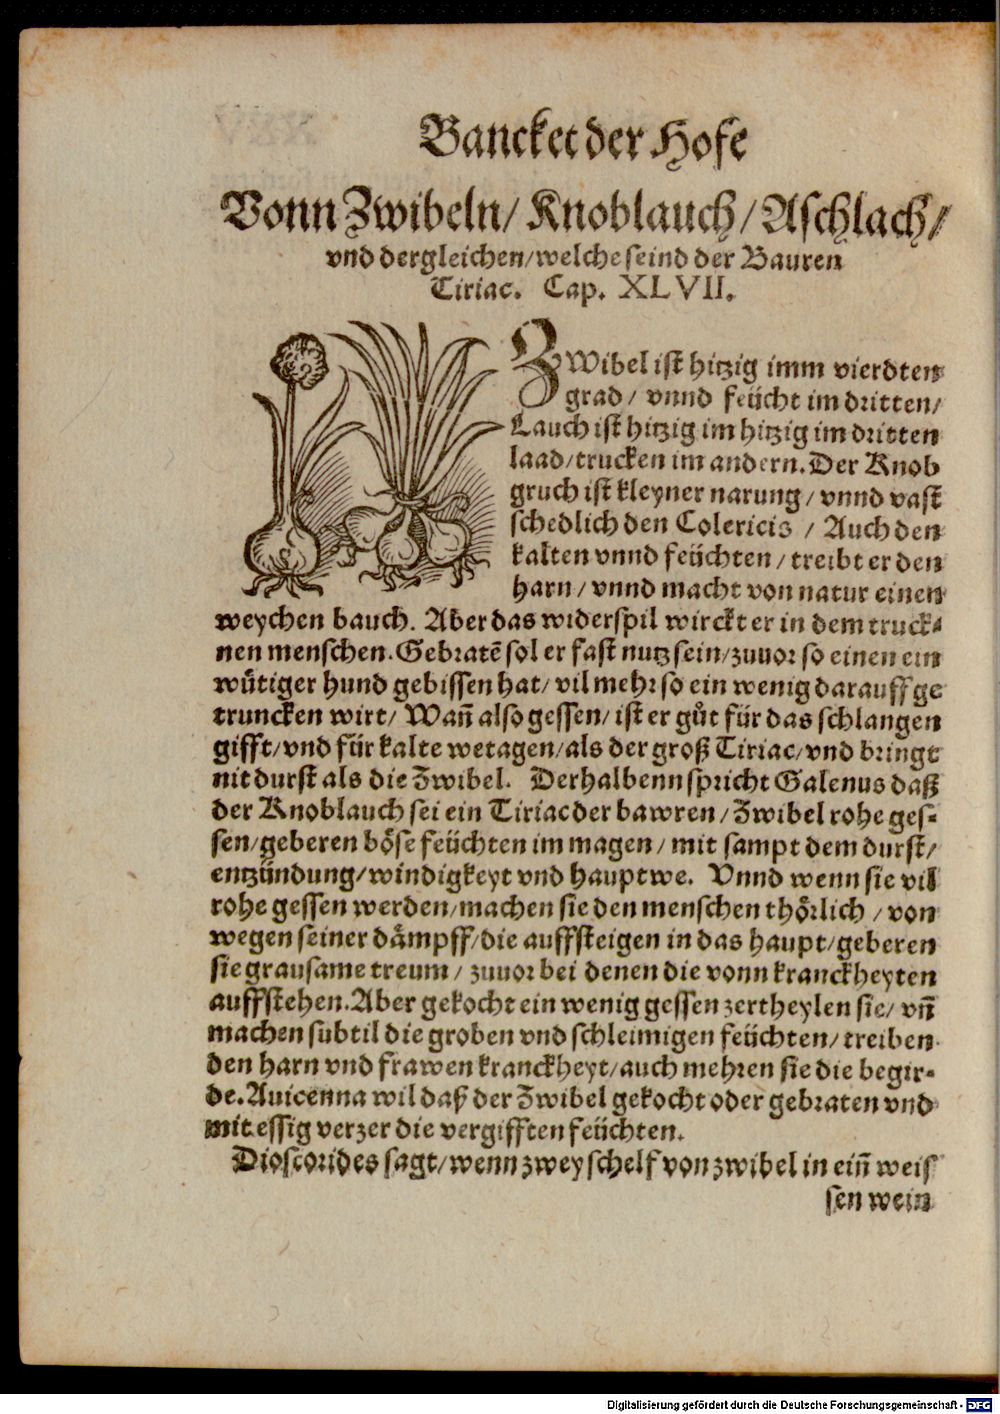 Bancket der Hofe
Vonn Zwibeln/ Knoblauch/ Aschlach/
vnd dergleichen/welche seind der Bauren
Tiriac. Cap. XLVII.
ZWibel ist hitzig imm vierdten
grad/ vnnd feücht im dritten/
Lauch ist hitzig im hitzig im dritten
laad/trucken im andern. Der Knob
gruch ist kleyner narung/ vnnd vast
schedlich den Colericis / Auch den
kalten vnnd feüchten/ treibt er den
harn/ vnnd macht von natur einen
weychen bauch. Aber das widerspil wirckt er in dem truck⸗
nen menschen. Gebratē sol er fast nutz sein/zuuor so einen ein
wütiger hund gebissen hat/ vil mehr so ein wenig darauff ge
truncken wirt/ Wañ also gessen/ ist er gůt für das schlangen
gifft/vnd für kalte wetagen/als der groß Tiriac/vnd bringt
nit durst als die Zwibel. Derhalbenn spricht Galenus daß
der Knoblauch sei ein Tiriac der bawren/ Zwibel rohe ges⸗
sen/geberen böse feüchten im magen/ mit sampt dem durst/
entzündung/windigkeyt vnd hauptwe. Vnnd wenn sie vil
rohe gessen werden/machen sie den menschen thörlich /von
wegen seiner dämpff/die auffsteigen in das haupt/geberen
sie grausame treum/ zuuor bei denen die vonn kranckheyten
auffstehen. Aber gekocht ein wenig gessen zertheylen sie/ vñ
machen subtil die groben vnd schleimigen feüchten/ treiben
den harn vnd frawen kranckheyt/auch mehren sie die begir⸗
de. Auicenna wil daß der Zwibel gekocht oder gebraten vnd
mit essig verzer die vergifften feüchten.
Dioscorides sagt/wenn zwey schelf von zwibel in eiñ weis
sen wein
Digitalisierung gefördert durch die Deutsche Forschungsgemeinschaft - DFG